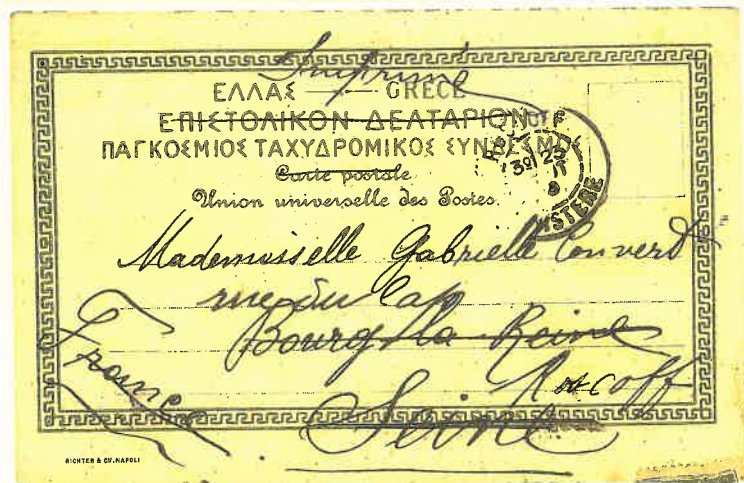 Imprimé
ΕΛΛΑΣ — GRECE
ΕΠΙΣΤΟΛΙΚΟΝ ΔΕΛΤΑΡΙΟΝ
ΠΑΓΚΟΣΜΙΟΣ ΤΑΧΥΔΡΟΜΙΚΟΣ ΣΥΝΔΕΣΜΟΣ
Carte postale
Union universelle des Postes.
Mademoiselle Gabrielle Convert
rue du Cap
Bourg la Reine
Roscoff
Seine
France
RICHTER & Cº. NAPOLI